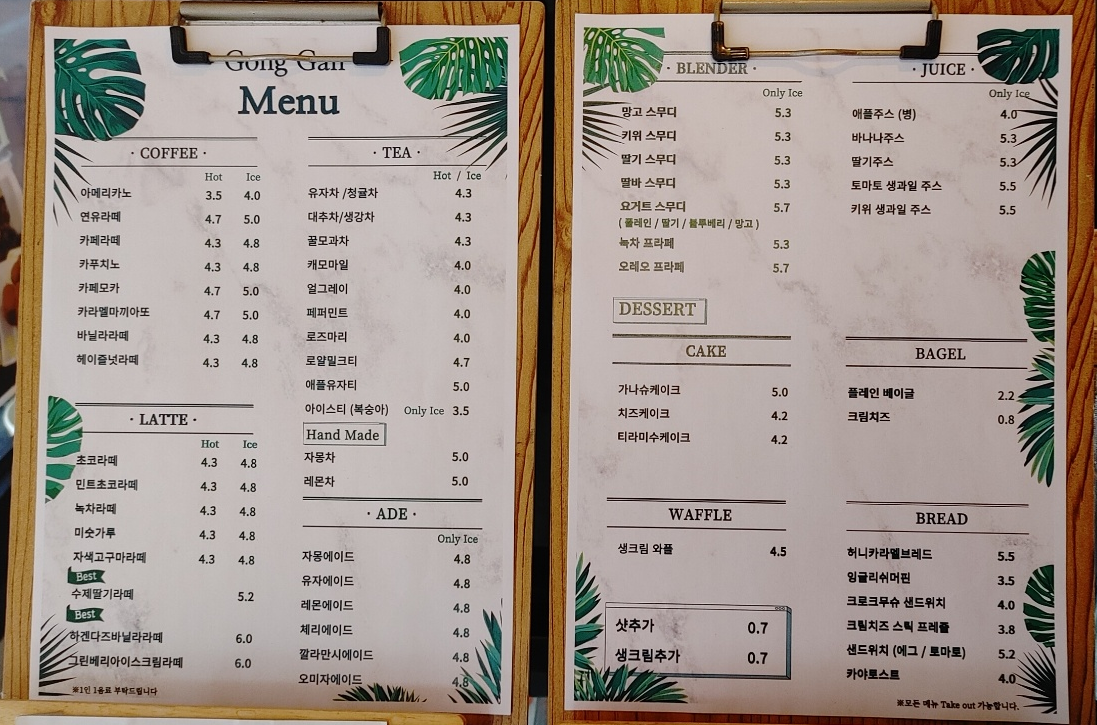 Gong Gan
Menu
· COFFEE ·
Hot Ice
아메리카노 3.5 4.0
연유라떼 4.7 5.0
카페라떼 4.3 4.8
카푸치노 4.3 4.8
카페모카 4.7 5.0
카라멜마끼아또 4.7 5.0
바닐라라떼 4.3 4.8
헤이즐넛라떼 4.3 4.8
· LATTE ·
Hot Ice
초코라떼 4.3 4.8
민트초코라떼 4.3 4.8
녹차라떼 4.3 4.8
미숫가루 4.3 4.8
자색고구마라떼 4.3 4.8
Best
수제딸기라떼 5.2
Best
하겐다즈바닐라라떼 6.0
그린베리아이스크림라떼 6.0
※1인 1음료 부탁드립니다
· TEA ·
Hot / Ice
유자차 /청귤차 4.3
대추차/생강차 4.3
꿀모과차 4.3
캐모마일 4.0
얼그레이 4.0
페퍼민트 4.0
로즈마리 4.0
로얄밀크티 4.7
애플유자티 5.0
아이스티 (복숭아) Only Ice 3.5
Hand Made
자몽차 5.0
레몬차 5.0
· ADE ·
Only Ice
자몽에이드 4.8
유자에이드 4.8
레몬에이드 4.8
체리에이드 4.8
깔라만시에이드 4.8
오미자에이드 4.8
· BLENDER ·
Only Ice
망고 스무디 5.3
키위 스무디 5.3
딸기 스무디 5.3
딸바 스무디 5.3
요거트 스무디 5.7
( 플레인 / 딸기 / 블루베리 / 망고 )
녹차 프라페 5.3
오레오 프라페 5.7
· JUICE ·
Only Ice
애플주스 (병) 4.0
바나나주스 5.3
딸기주스 5.3
토마토 생과일 주스 5.5
키위 생과일 주스 5.5
DESSERT
CAKE
가나슈케이크 5.0
치즈케이크 4.2
티라미수케이크 4.2
BAGEL
플레인 베이글 2.2
크림치즈 0.8
WAFFLE
생크림 와플 4.5
샷추가 0.7
생크림추가 0.7
BREAD
허니카라멜브레드 5.5
잉글리쉬머핀 3.5
크로크무슈 샌드위치 4.0
크림치즈 스틱 프레즐 3.8
샌드위치 (에그 / 토마토) 5.2
카야토스트 4.0
※모든 메뉴 Take out 가능합니다.